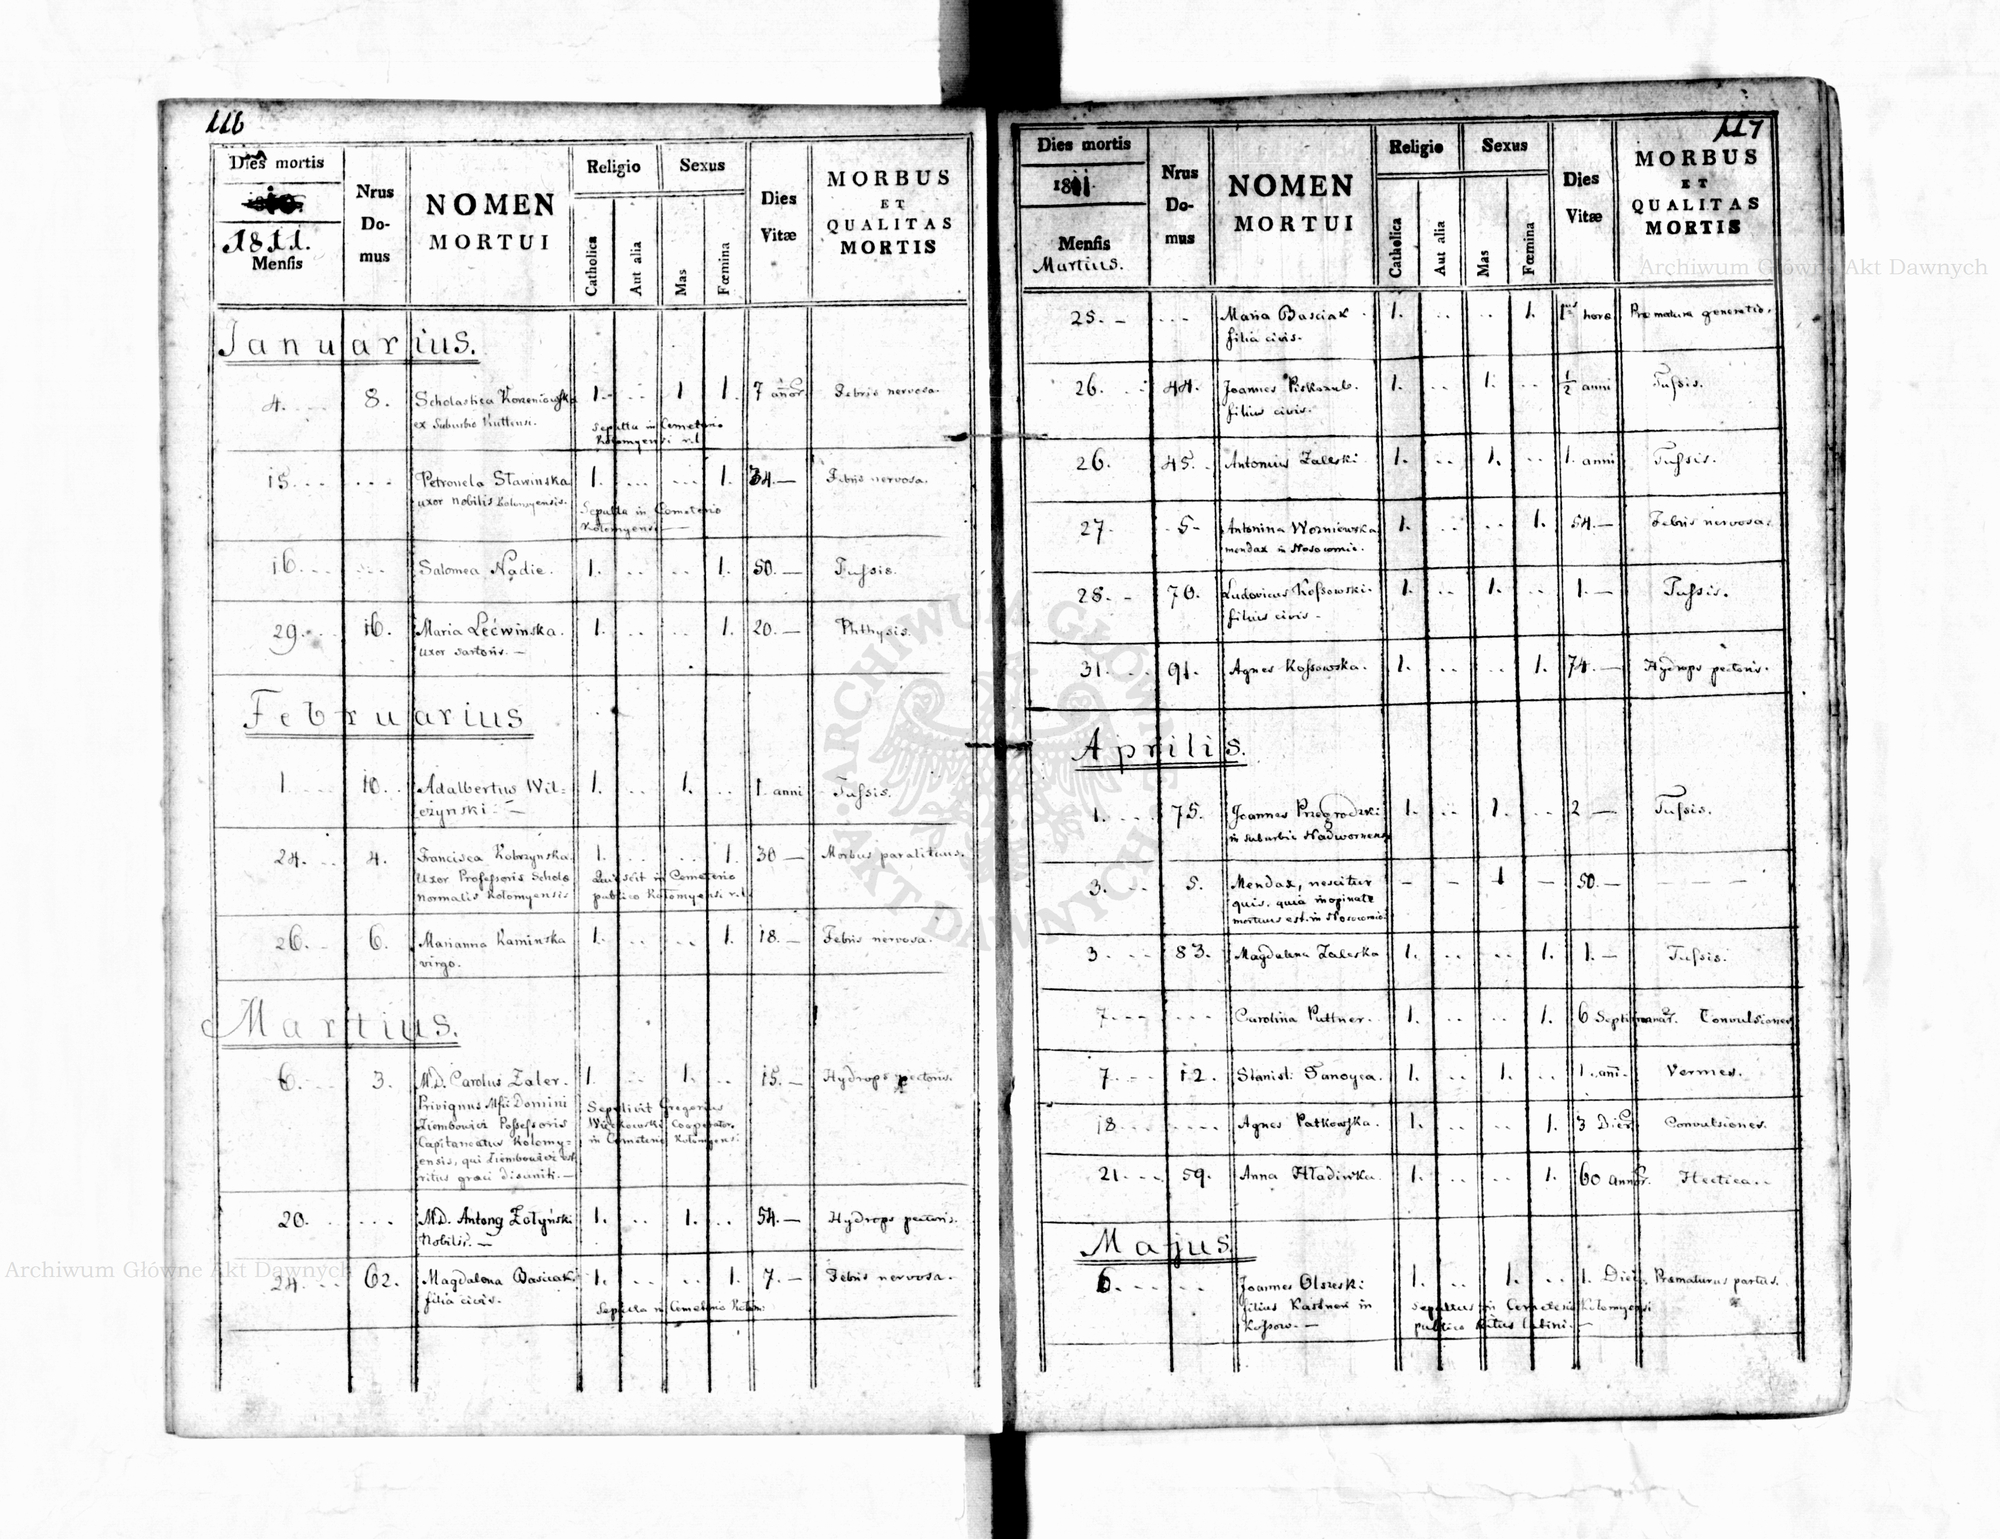 116
Dies mortis
1811.
Mensis
Nrus
Do-
mus
NOMEN
MORTUI
Religio
Catholica
Aut alia
Sexus
Mas
Fœmina
Dies
Vitæ
MORBUS
ET
QUALITAS
MORTIS
Januarius.
4. 8. Scholastica Korzeniowska 1. 1 1. 7 annor. Febris nervosa.
ex Suburbio Kuttensi.
Sepulta in Cemeterio
Kolomyensi r. l.
15. Petronela Sławinska 1. 1. 34.— Febris nervosa.
uxor nobilis Kolomyensis.
Sepulta in Cemeterio
Kolomyensi —
16. Salomea Nądie. 1. 1. 50.— Tussis.
29. 16. Maria Lećwinska. 1. 1. 20.— Phthysis.
uxor sartoris. —
Februarius
1. 10. Adalbertus Wil= 1. 1. 1. anni Tussis.
czynski. —
24. 4. Francisca Kobrzynska. 1. 1. 30 — Morbus paraliticus.
Uxor Professoris Scholæ
normalis Kolomyensis
in Cemeterio
publico Kolomyensi r. l.
26. 6. Marianna Kaminska 1. 1. 18.— Febris nervosa.
virgo.
Martius.
6. 3. M.D. Carolus Zaler. 1. 1. 15.— Hydrops pectoris.
Privignus Mfici Domini
Ziembowicz Possessoris
Capitaneatus Kolomy=
ensis, qui Ziembowicz est
ritus græci disuniti. —
Sepelivit Gregorius
Cooperator
in Cemeterio Kolomyensi
20. M.D. Antony Żołyński 1. 1. 54.— Hydrops pectoris.
Nobilis. —
24. 62. Magdalena Basiciak 1. 1. 7.— Febris nervosa.
filia civis.
Sepulta in Cemeterio Kolom:
117
Dies mortis
1811.
Mensis
Martius.
Nrus
Do-
mus
NOMEN
MORTUI
Religio
Catholica
Aut alia
Sexus
Mas
Fœmina
Dies
Vitæ
MORBUS
ET
QUALITAS
MORTIS
25. — Maria Basciak 1. 1. 1us horæ Præmatura generatio.
filia civis.
26. 44. Joannes Piskozub. 1. 1. 1/2 anni Tussis.
filius civis.
26. 45. Antonius Zaleski 1. 1. 1. anni Tussis.
27. 5. Antonina Wozniowska 1. 1. 54.— Febris nervosa.
mendax in Nosocomio.
28. 70. Ludovicus Kossowski. 1. 1. 1.— Tussis.
filius civis.
31. 91. Agnes Kossowska. 1. 1. 74.— Hydrops pectoris.
Aprilis.
1. 75. Joannes Przegrodzki 1. 1. 2 — Tussis.
in suburbio Nadwornensi
3. 5. Mendax, nescitur — — 1 — 50.— — — —
quis. quia inopinate
mortuus est in Nosocomio.
3 83. Magdalena Zaleska 1. 1. 1.— Tussis.
7. Carolina Puttner. 1. 1. 6 Septimanar. Convulsiones
7. 12. Stanisl: Tanoyca. 1. 1. 1. ani. Vermes.
18. Agnes Patkowska. 1. 1. 3 Dier. Convulsiones.
21. 59. Anna Hładiwka. 1. 1. 60 annor. Hectica.
Majus.
6. Joannes Olszeski 1. 1. 1. Diei. Præmaturus partus.
filius Kastneri in
Kossow. —
Sepultus in Cemeterio Kolomyensi
publico Ritus latini. —
Archiwum Główne Akt Dawnych
Archiwum Główne Akt Dawnych
ARCHIWUM GŁÓWNE AKT DAWNYCH